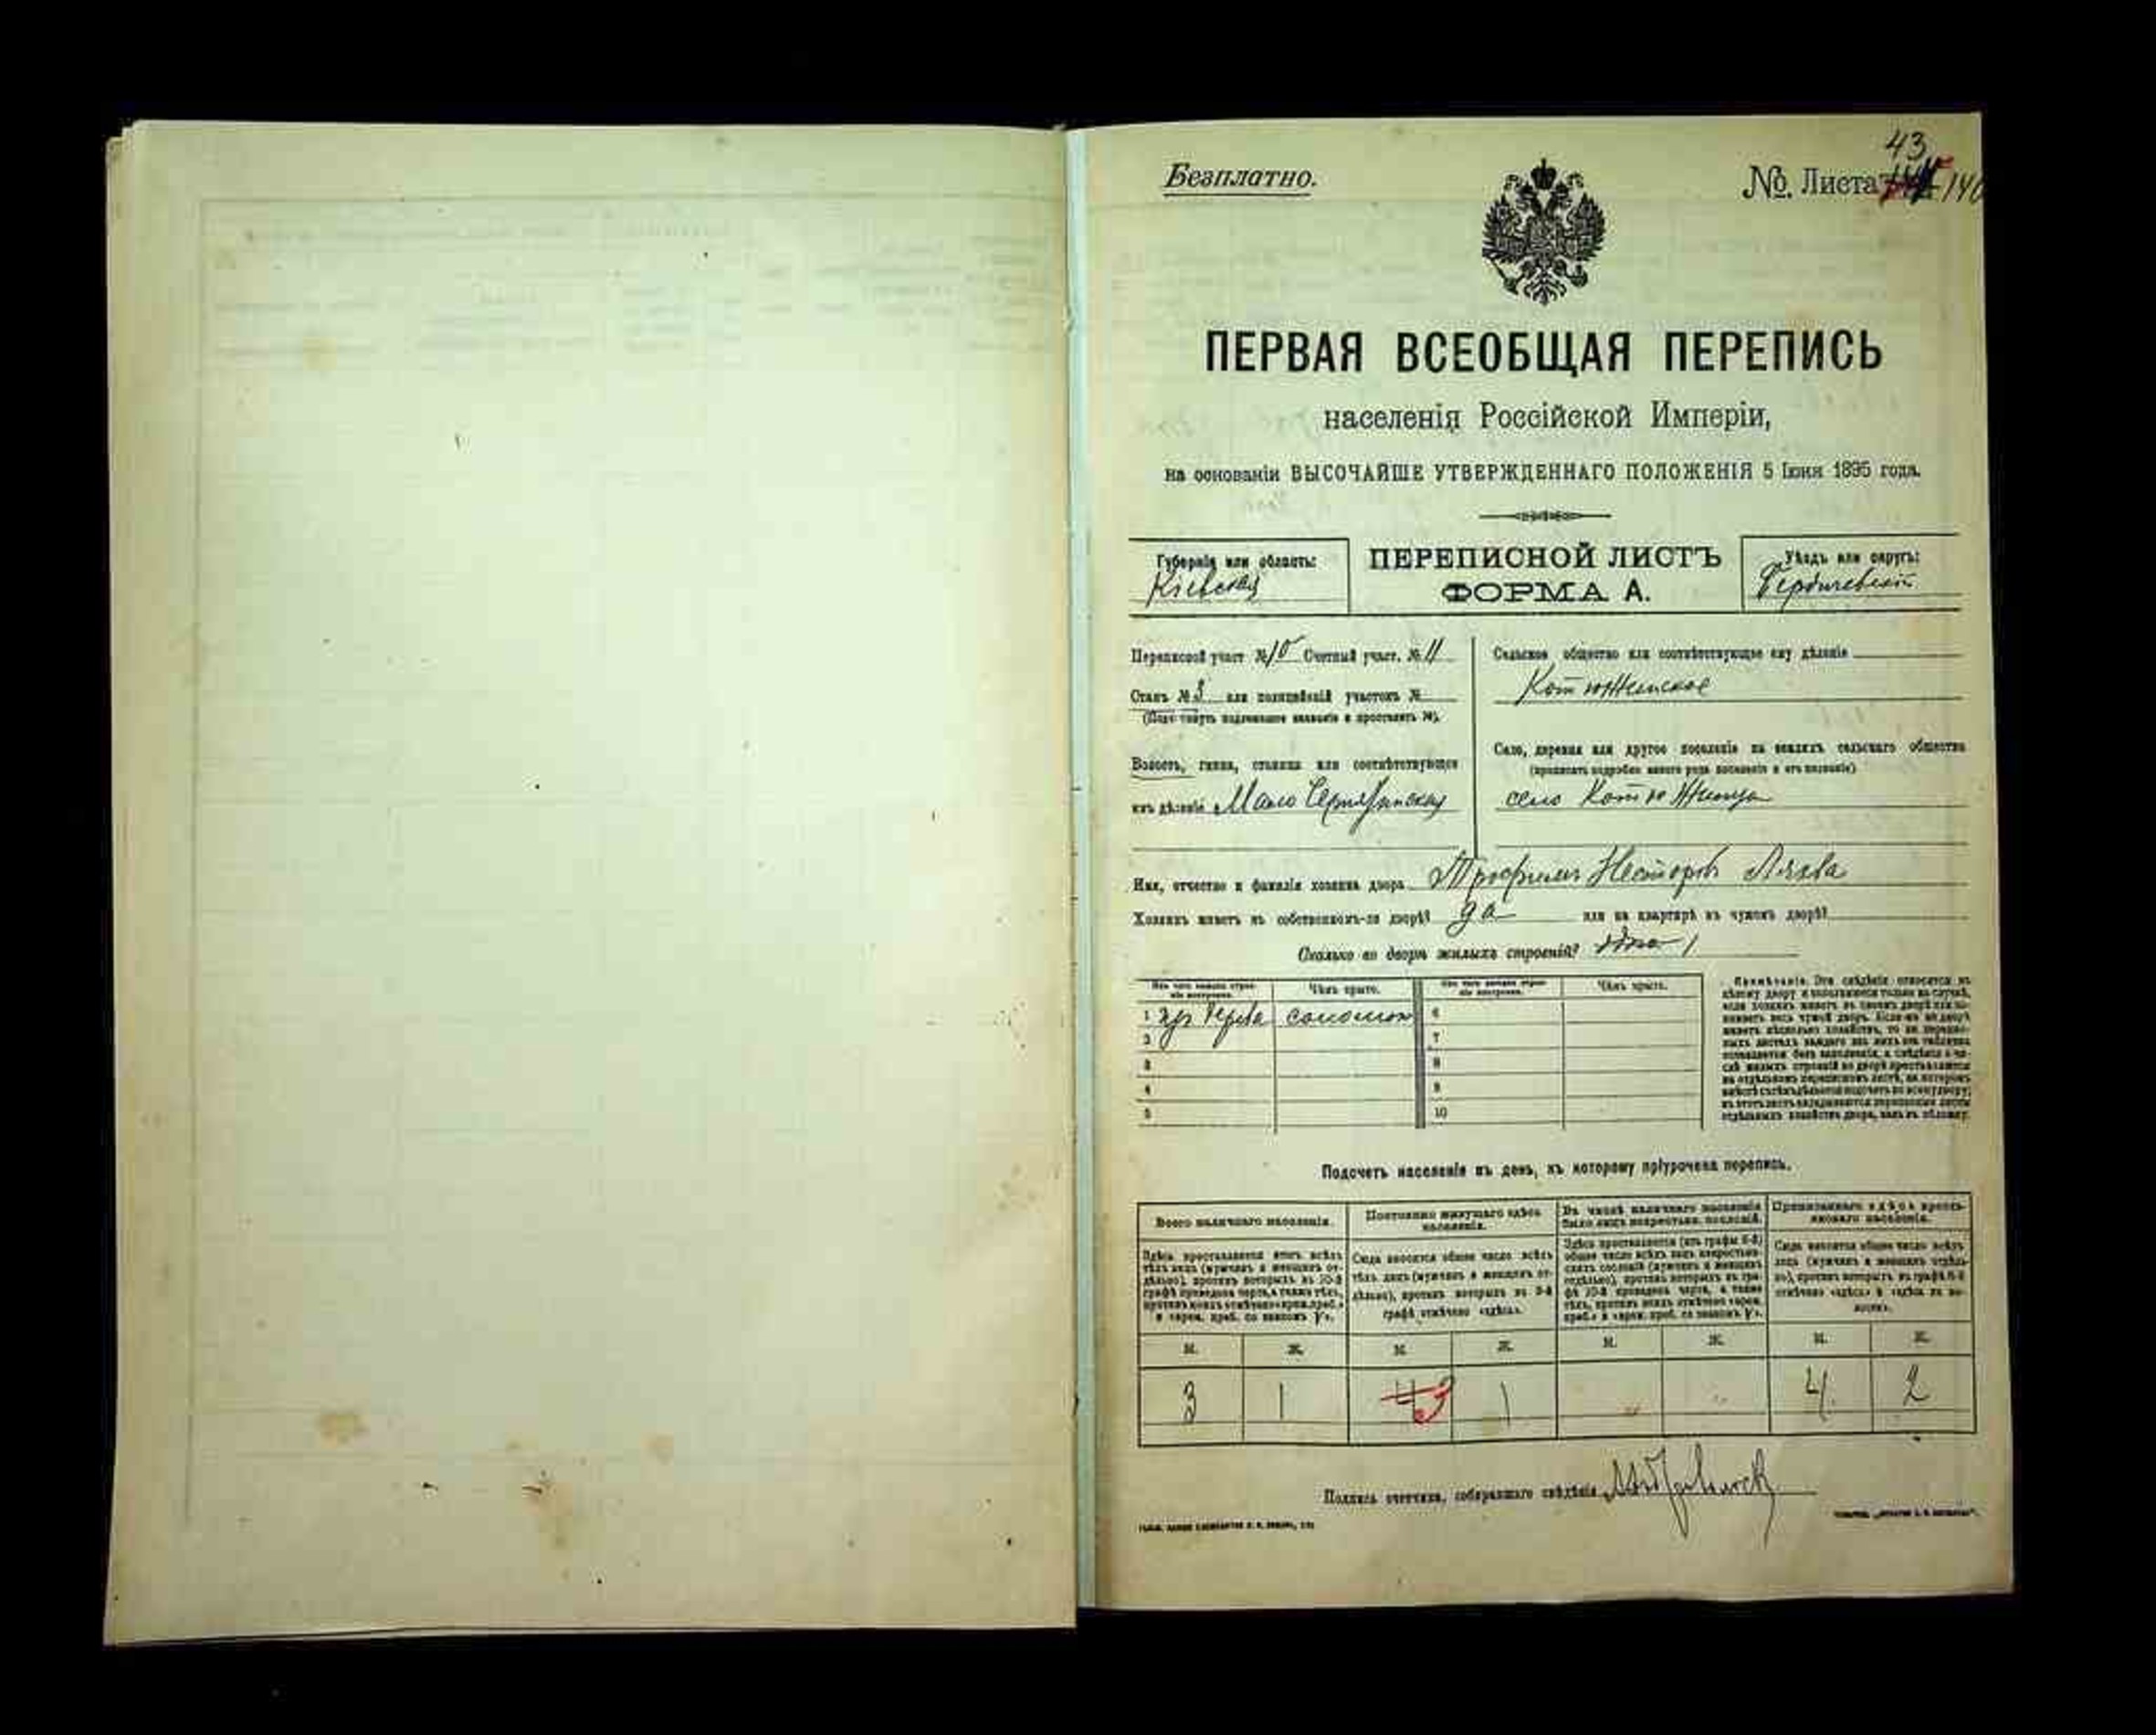 43
Безплатно.
№ Листа 140
ПЕРВАЯ ВСЕОБЩАЯ ПЕРЕПИСЬ
населенія Россійской Имперіи,
на основаніи ВЫСОЧАЙШЕ УТВЕРЖДЕННАГО ПОЛОЖЕНІЯ 5 Іюня 1895 года.
Губернія или область:
Кіевская
ПЕРЕПИСНОЙ ЛИСТЪ
ФОРМА А.
Уѣздъ или округъ:
Бердичевскій
Переписной участ. № 10 Счетный участ. № 11
Станъ № 3 или полицейскій участокъ №
(Подчеркнуть надлежащее названіе и проставить №).
Волость, гмина, станица или соотвѣтствующее
имъ дѣленіе Мало Чернятинская
Сельское общество или соотвѣтствующее ему дѣленіе
Котюжинское
Село, деревня или другое поселеніе на земляхъ сельскаго общества
(прописать подробно какого рода поселеніе и его названіе)
село Котюжинцы
Имя, отчество и фамилія хозяина двора Трофимъ Несторовъ
Хозяинъ живетъ въ собственномъ-ли дворѣ? да или на квартирѣ въ чужомъ дворѣ?
Сколько во дворѣ жилыхъ строеній? одно 1
Изъ чего каждое строеніе построено. Чѣмъ крыто. Изъ чего каждое строеніе построено. Чѣмъ крыто.
1 изъ дерева соломою 6
2 7
3 8
4 9
5 10
Примѣчаніе. Эти свѣдѣнія относятся къ
цѣлому двору и заполняются только въ случаѣ,
если хозяинъ живетъ въ своемъ дворѣ или за-
нимаетъ весь чужой дворъ. Если же во дворѣ
живетъ нѣсколько хозяйствъ, то на перепис-
ныхъ листахъ каждаго изъ нихъ эта табличка
оставляется безъ заполненія, а свѣдѣнія о чи-
слѣ жилыхъ строеній во дворѣ проставляются
на отдѣльномъ переписномъ листѣ, на которомъ
отдѣльныхъ хозяйствъ двора, какъ въ обложку.
Подсчетъ населенія въ день, къ которому пріурочена перепись.
Всего наличнаго населенія.
Здѣсь проставляется итогъ всѣхъ
тѣхъ лицъ (мужчинъ и женщинъ от-
дѣльно), противъ которыхъ въ 10-й
графѣ проведена черта, а также тѣхъ,
противъ коихъ отмѣчено «врем. преб.»
и «врем. преб. со знакомъ V».
Постоянно живущаго здѣсь
населенія.
Сюда вносится общее число всѣхъ
тѣхъ лицъ (мужчинъ и женщинъ от-
дѣльно), противъ которыхъ въ 9-й
графѣ отмѣчено «здѣсь».
Въ числѣ наличнаго населенія
было лицъ некрестьян. сословій.
Здѣсь проставляется (изъ графы 6-й)
общее число всѣхъ лицъ некрестьян-
скихъ сословій (мужчинъ и женщинъ
отдѣльно), противъ которыхъ въ гра-
фѣ 10-й проведена черта, а также
тѣхъ, противъ коихъ отмѣчено «врем.
преб.» и «врем. преб. со знакомъ V».
Приписаннаго здѣсь кресть-
янскаго населенія.
Сюда вносится общее число всѣхъ
лицъ (мужчинъ и женщинъ отдѣль-
но), противъ которыхъ въ графѣ 8-й
отмѣчено «здѣсь» и «здѣсь въ во-
лости».
М. Ж. М. Ж. М. Ж. М. Ж.
3 1 3 1 4 2
Подпись счетчика, собиравшаго свѣдѣнія